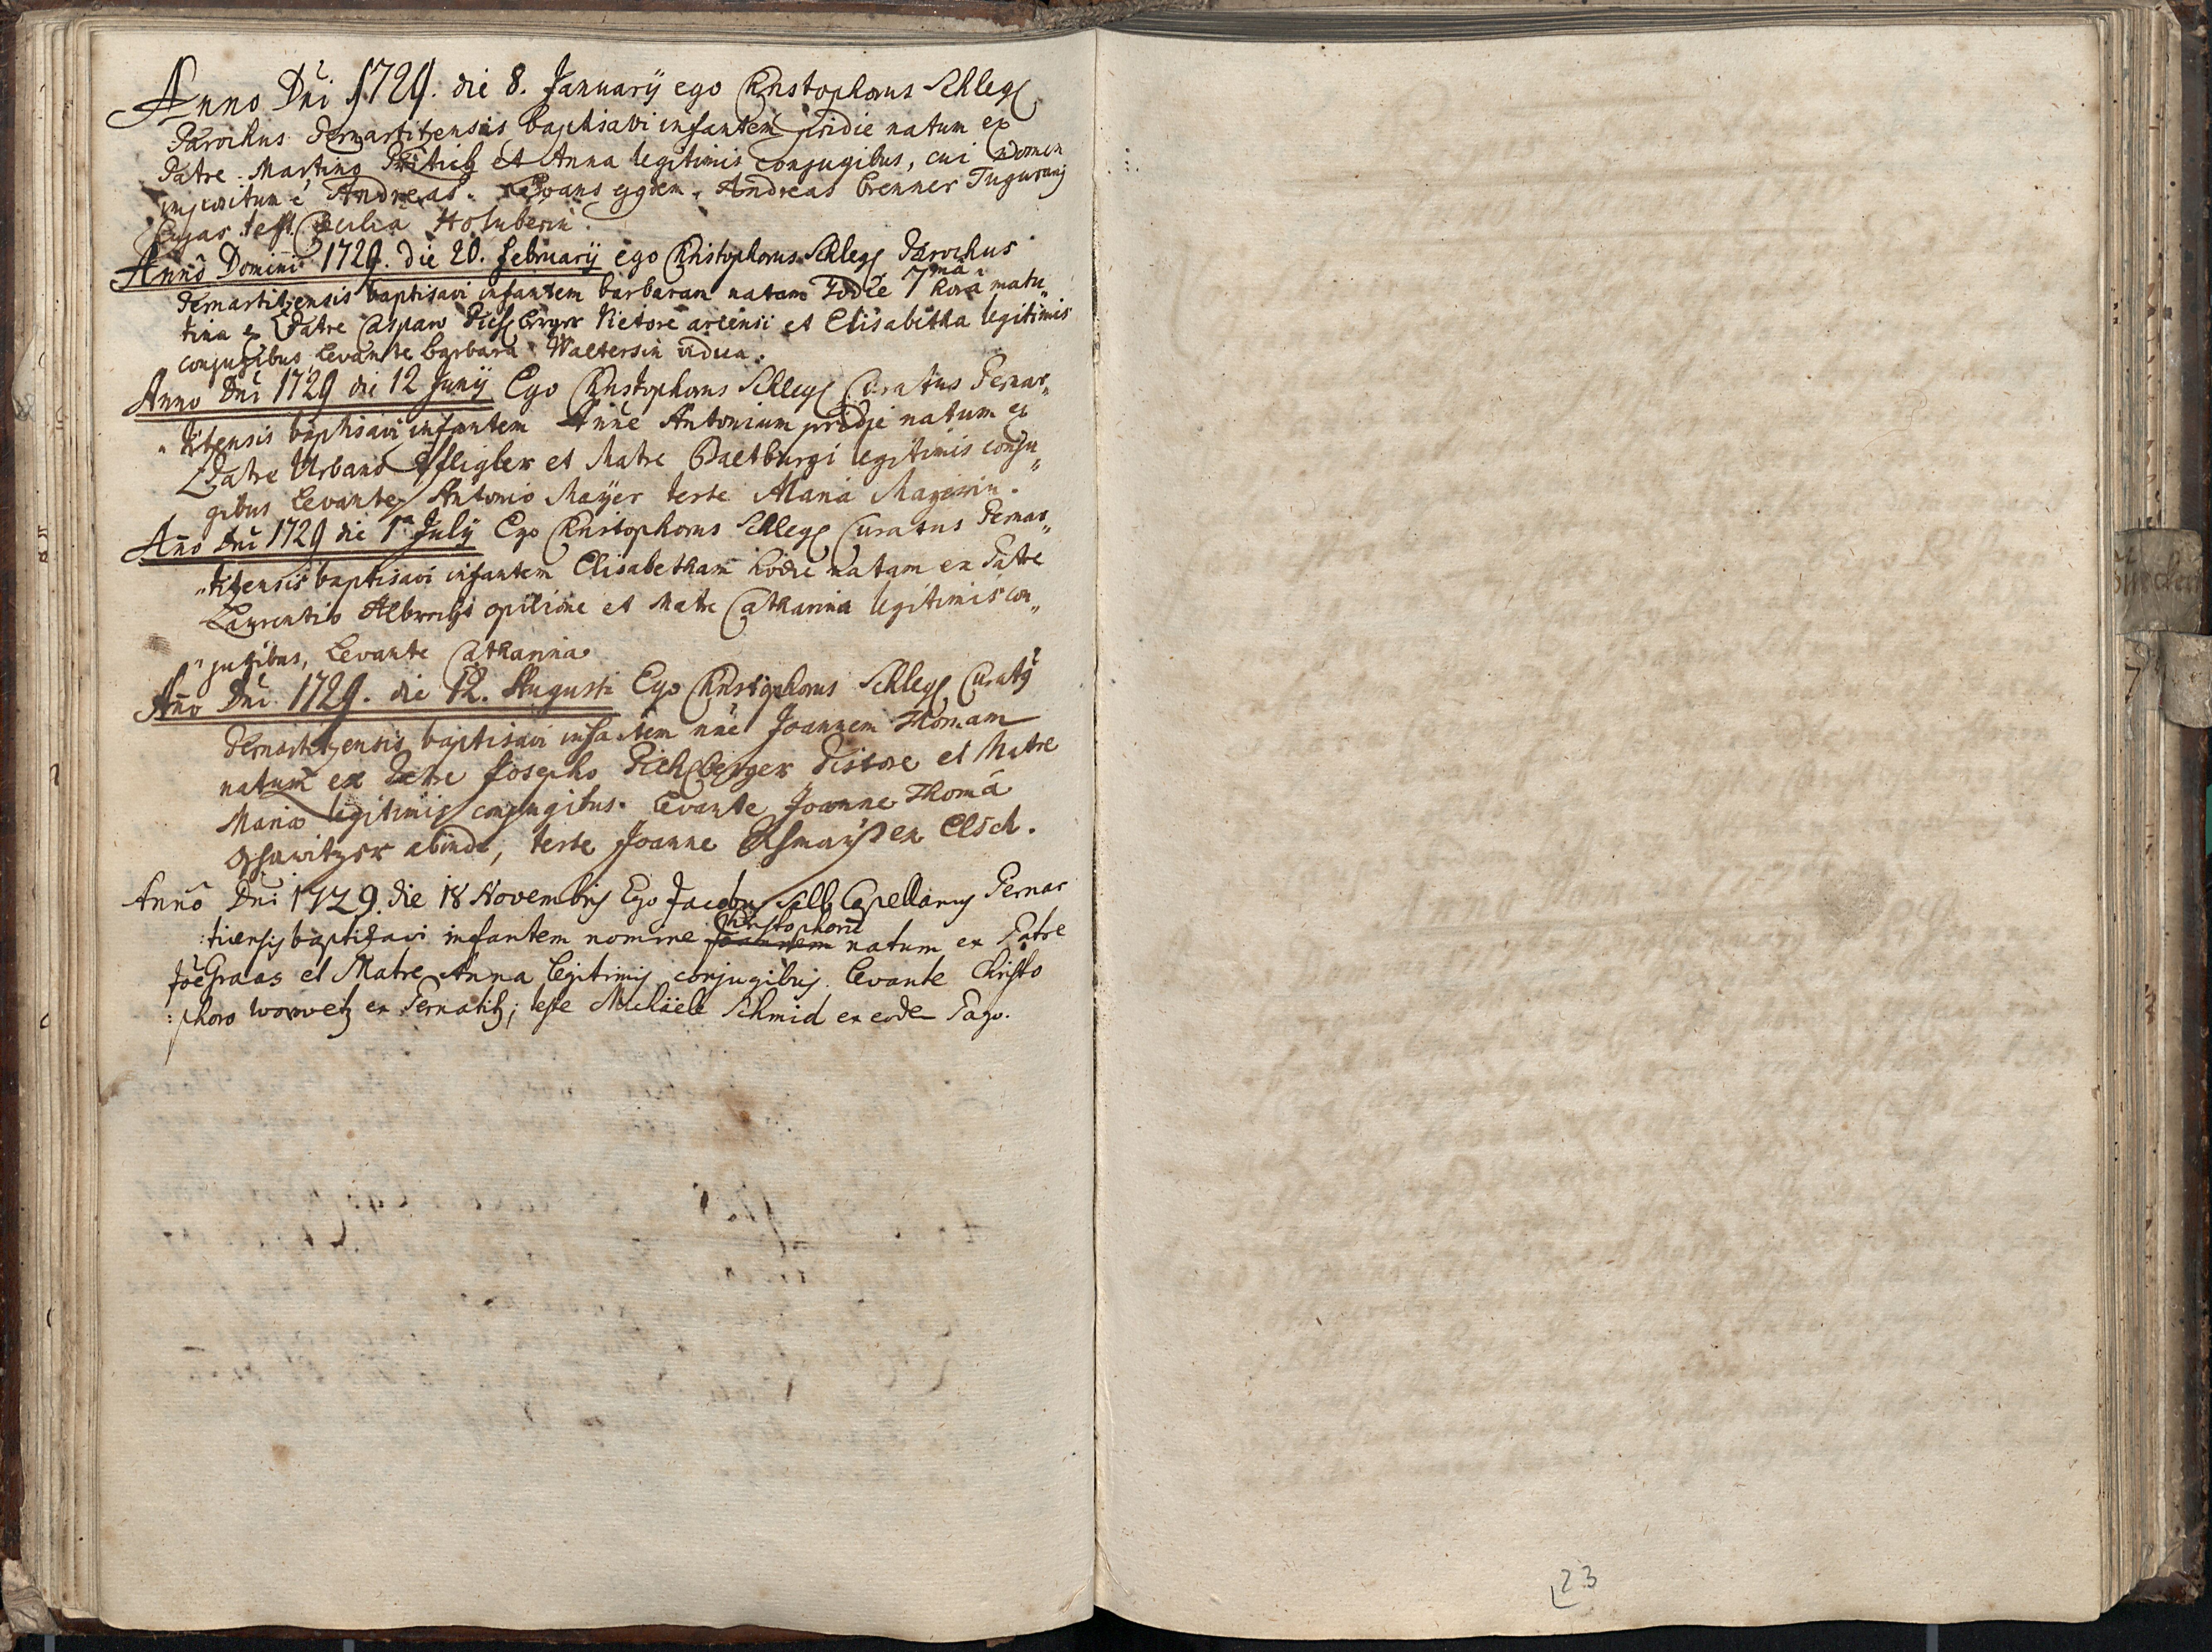 Anno Dñi 1729. die 8. Januarÿ ego Christophorus Schlegl
Parochus Pernartitzensis baptisavi infantem pridie natum ex
Patre Martino et Anna legitimis conjugibus, cui Nomen
impositum ẽ Andreas. Levans Andreas Brenner
test. Cæcilia Holuberin
Anno Domini 1729. die 20. februarÿ ego Christophorus Schlegl Parochus
Pernartitzensis baptisavi infantem barbaram natam hodie 7mâ horâ matu„
tina ex Patre Casparo Vietore et Elisabetha legitimis
conjugibus Levante barbara Waltersin vidua.
Anno Dñi 1729 die 12 Junÿ Ego Christophorus Schlegl Curatus Pernar„
„titzensis baptisavi infantem Antonium pridie natum ex
Patre Urbano Pfligler et Matre Baltburgi legitimis conju„
gibus Levante Antonio Mayer teste Maria Mayerin.
Año Dñi 1729 die 1ª July Ego Christophorus Schlegl Curatus Pernar„
„titzensis baptisavi infantem Elisabetham hodie natam ex Patre
Laurentio Albrecht opilione et Matre Catharina legitimis con„
„jugibus, Levante Catharina
Año Dñi 1729. die 12. Augusti Ego Christophorus Schlegl Curatꝰ
Pernartitzensis baptisavi infantem nñe Joannem Thomam
natum ex Patre Josepho Pichlberger Pistore et Matre
Maria legitimis conjugibus. Levante Joanne Thomâ
abinde, teste Joanne ex Elsch.
Annô Dñi 1729. die 18 Novembris Ego Jacobus Sell Capellanus Pernar
:ticensis baptizavi infantem nomine Joannem Christophorũ natum ex Patre
Joẽ Graas et Matre Anna legitimis conjugibus. levante Christo
:phoro Worwetz ex Pernatitz; teste Michäele Schmid ex eodem Pago.
23